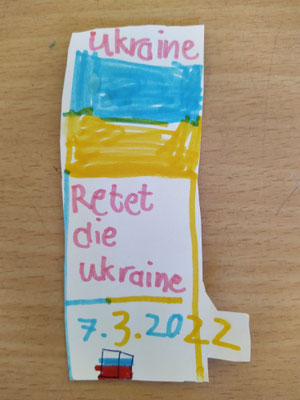 Ukraine
Retet
die
Ukraine
7.3.2022